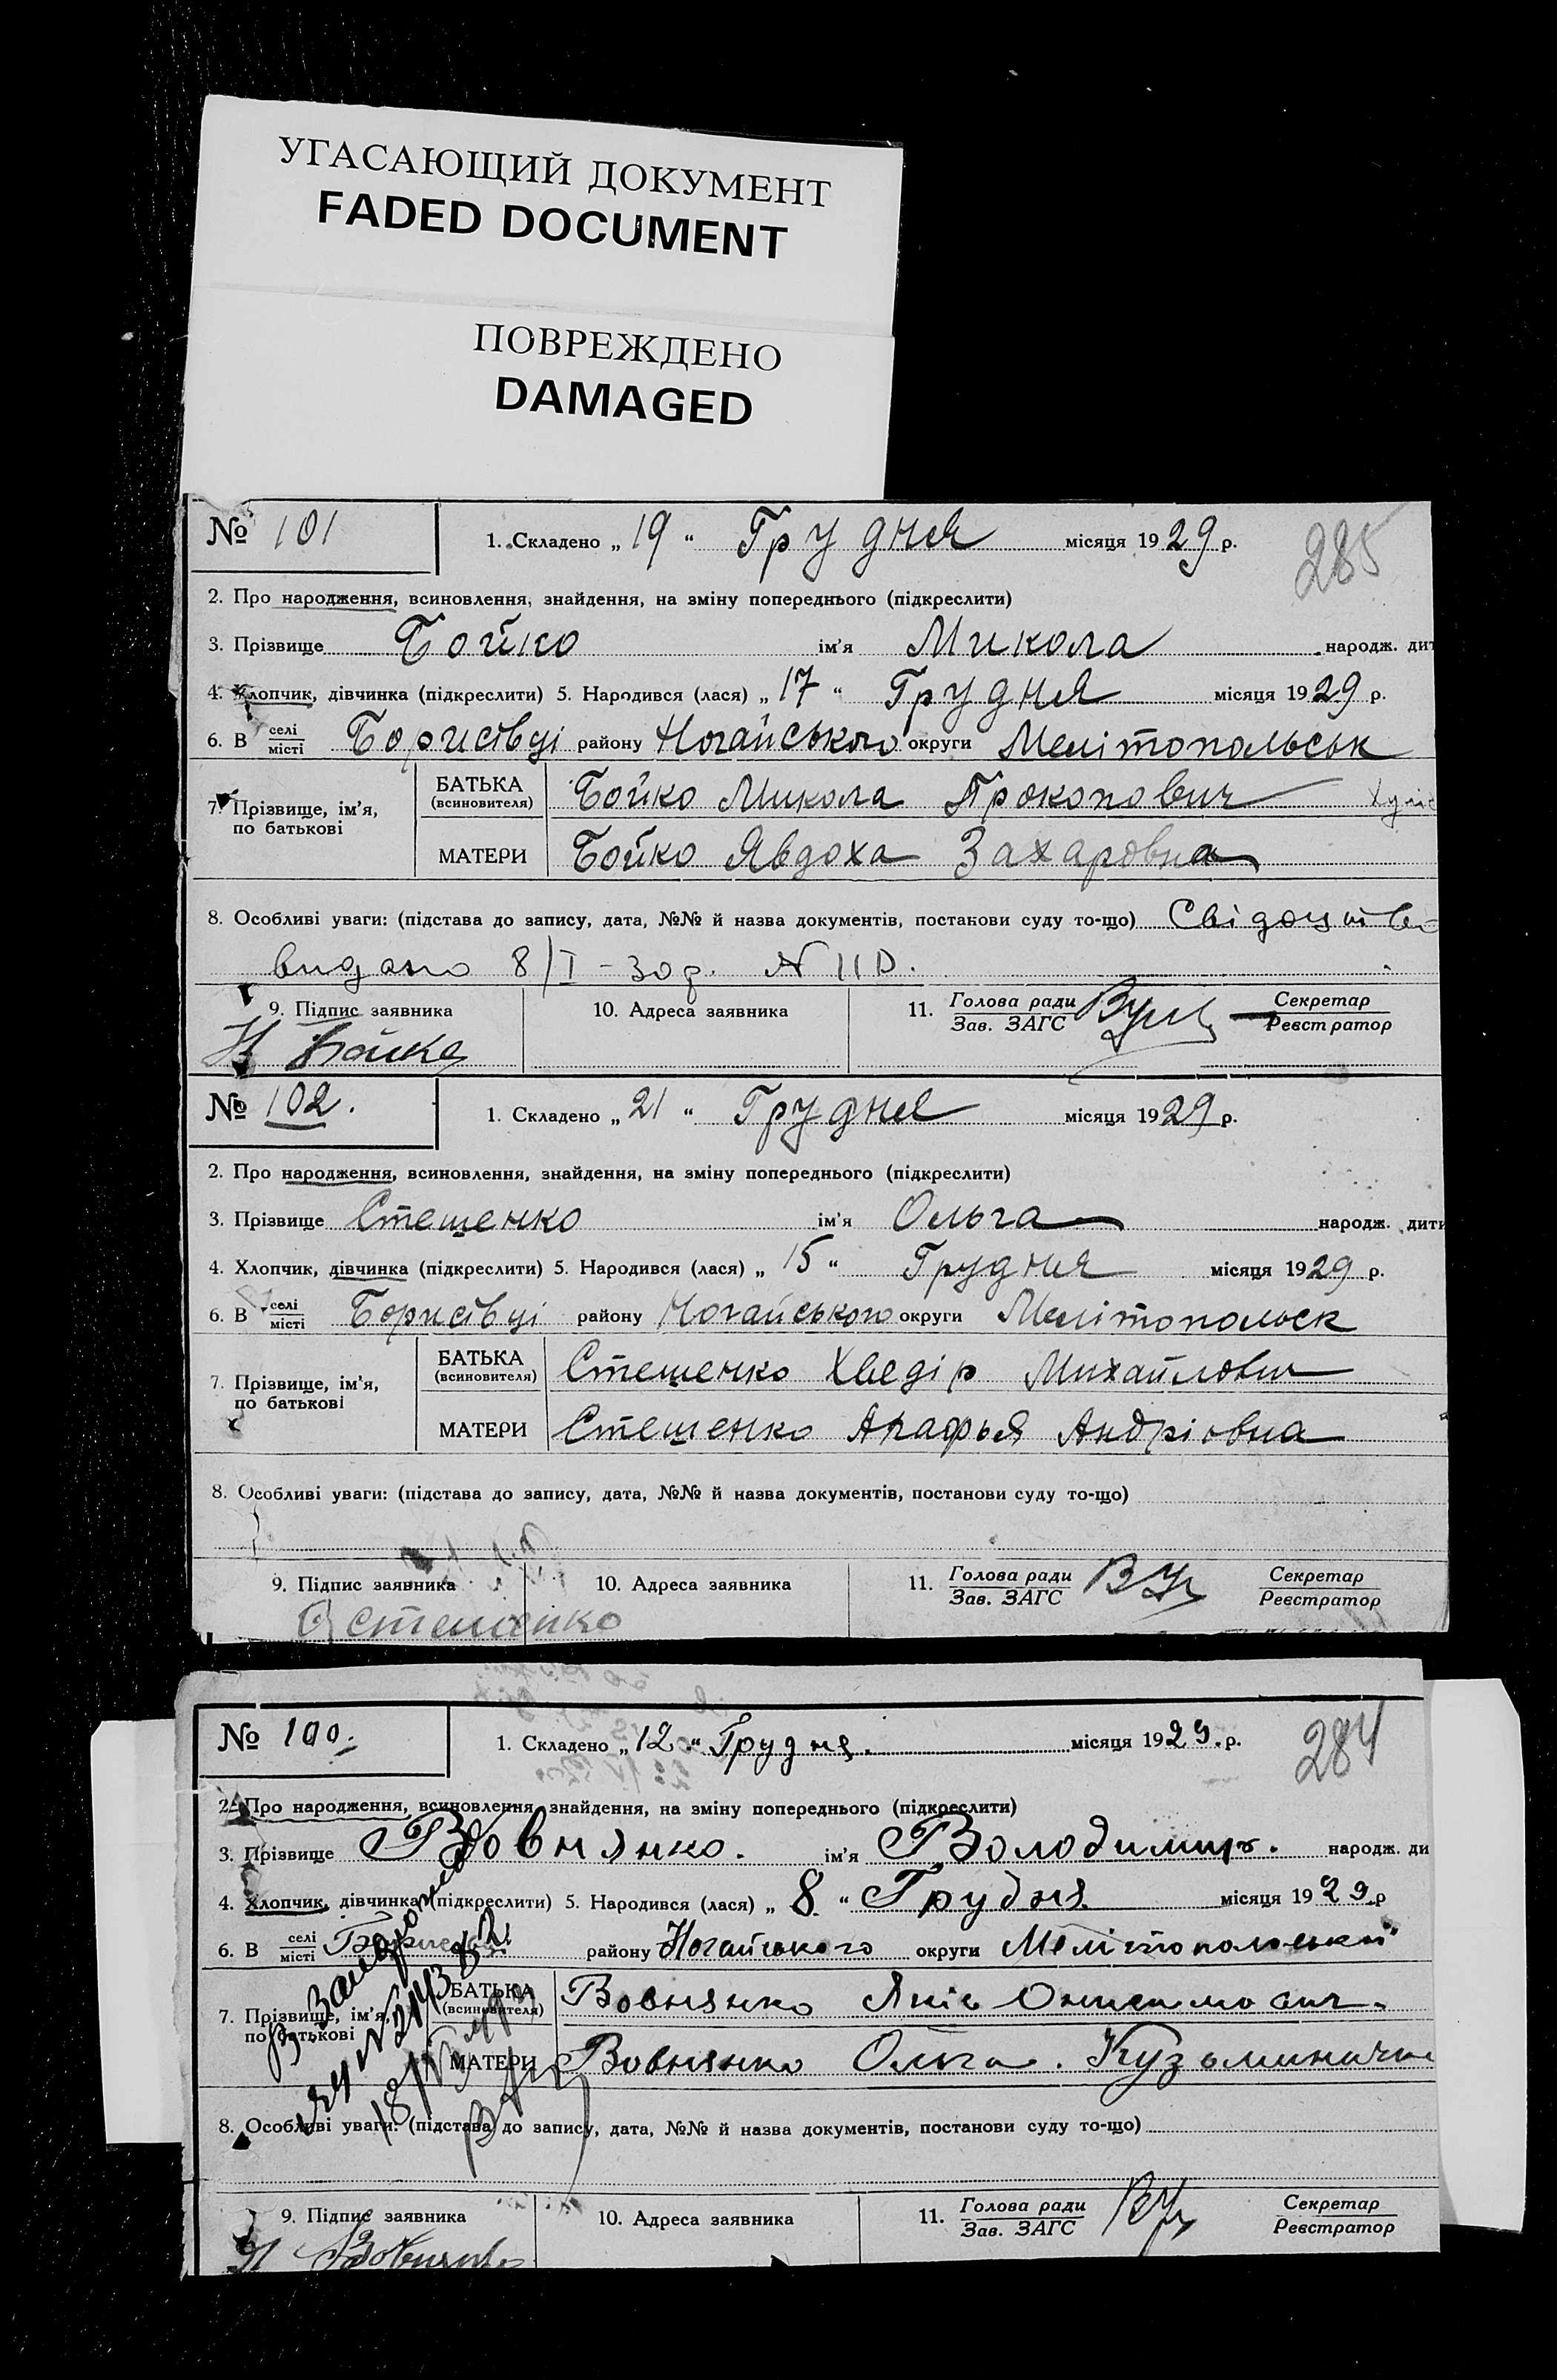 УГАСАЮЩИЙ ДОКУМЕНТ
FADED DOCUMENT
ПОВРЕЖДЕНО
DAMAGED
№ 101 1. Складено „ 19 “ Грудня місяця 1929 р. 285
2. Про народження, всиновлення, знайдення, на зміну попереднього (підкреслити)
3. Прізвище Бойко ім'я Микола народж. дит
4. Хлопчик, дівчинка (підкреслити) 5. Народився (лася) „ 17 “ Грудня місяця 1929 р.
6. В селі/місті Борисівці району Ногайського округи Мелітопольськ
7. Прізвище, ім'я, по батькові
БАТЬКА (всиновителя) Бойко Микола Прокопович
МАТЕРИ Бойко Явдоха Захаровна
8. Особливі уваги: (підстава до запису, дата, №№ й назва документів, постанови суду то-що) Свідоцтво
видано 8/I-30р. № 110.
9. Підпис заявника 10. Адреса заявника 11. Голова ради/Зав. ЗАГС Секретар/Реєстратор
Н Бойко
№ 102. 1. Складено „ 21 “ Грудня місяця 1929 р.
2. Про народження, всиновлення, знайдення, на зміну попереднього (підкреслити)
3. Прізвище Стешенко ім'я Ольга народж. дити
4. Хлопчик, дівчинка (підкреслити) 5. Народився (лася) „ 15 “ Грудня місяця 1929 р.
6. В селі/місті Борисівці району Ногайського округи Мелітопольск
7. Прізвище, ім'я, по батькові
БАТЬКА (всиновителя) Стешенко Хведір Михайлович
МАТЕРИ Стешенко Агафья Андріовна
8. Особливі уваги: (підстава до запису, дата, №№ й назва документів, постанови суду то-що)
9. Підпис заявника 10. Адреса заявника 11. Голова ради/Зав. ЗАГС Секретар/Реєстратор
Стешенко
№ 100. 1. Складено „ 12 “ Грудня. місяця 1929. р. 284
2. Про народження, всиновлення, знайдення, на зміну попереднього (підкреслити)
3. Прізвище Вовнянко. ім'я Володимир. народж. ди
4. Хлопчик, дівчинка (підкреслити) 5. Народився (лася) „ 8 “ Грудня місяця 1929 р
6. В селі/місті Борисівці району Ногайського округи Мелітопольський
7. Прізвище, ім'я, по батькові
БАТЬКА (всиновителя) Вовнянко Яків Онисимович.
МАТЕРИ Вовнянко Ольга. Кузьминична
8. Особливі уваги: (підстава до запису, дата, №№ й назва документів, постанови суду то-що)
9. Підпис заявника 10. Адреса заявника 11. Голова ради/Зав. ЗАГС Секретар/Реєстратор
Я Вовнянко